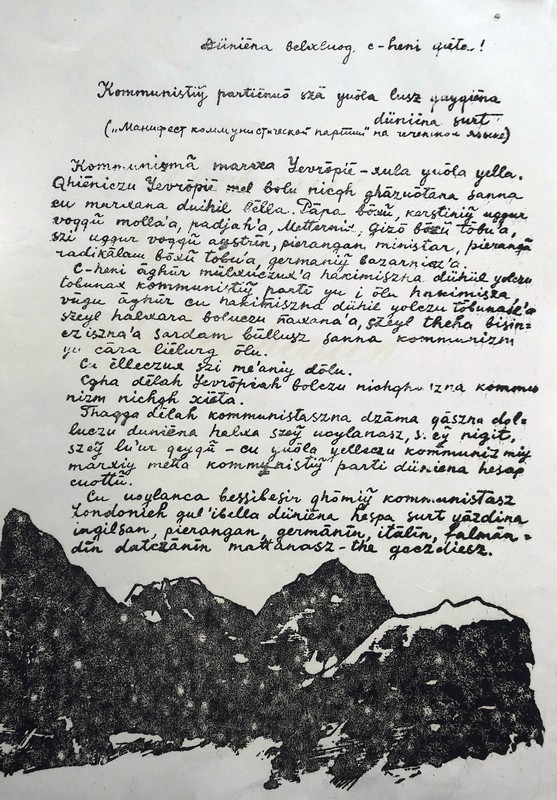 Düniēna belxluog, c-heni qiēte..!
Kommunistiÿ partiēnuō szā yuōla lusz gaygiēna
düniēna surt
(„Манифест коммунистической партии" на чеченском языке)
Kommunizmā marxa Yevrōpiē-xula yuōla yella.
Qhiēniczu Yevrōpiē mel bolu nicqh ghāzuōtana sanna
cu marxana duihil bēlla. Pāpa bōxü, kerstiniÿ uggur
voggü molla'a, padjah'a, Metternix, Gizō bōxü tōbu'a,
szi uggur voggü agstrin, pierangan, ministar, pierangā
radikālam bōxü tōbu'a, germaniÿ bazarnica'a.
C-heni āghür mülxxiczux'a hākimiszna dühül yolczu
tōbunax kommunistiÿ parti yu i ōlu hakimisza,
vügu āghür cu hakimiszna dühil yolczu tōbunasz'a
szeyl halxara boluczu naxana'a, szeyl theha bisin=
cziszna'a sardam büllusz sanna kommunizm
yu cāra liēburg ōlu.
Cu ēlleczux szi me'aniy dōlu.
Cgha dēlah Yevrōpiēah bolczu nichqhiszna kommu
nizm nichgh xiēta.
Thagga dēlah kommunistaszna dzāma gāszna dol=
luczu düniēna halxa szeÿ uoylanasz, s. eÿ nigit,
szeÿ lu'ur geygā – cu yuōla yelleczu kommunizmiy
marxiy metta kommunistiÿ parti düniēna hesap
cuottü.
Cu uoylanca bessibesir ghōmiÿ kommunistasz
Londonieh gul'ibella düniēna hespa surt yāzdina
ingilsan, pierangan, germānin, itālin, falman=
din datczānin mattanasz-the gaczdiesz.